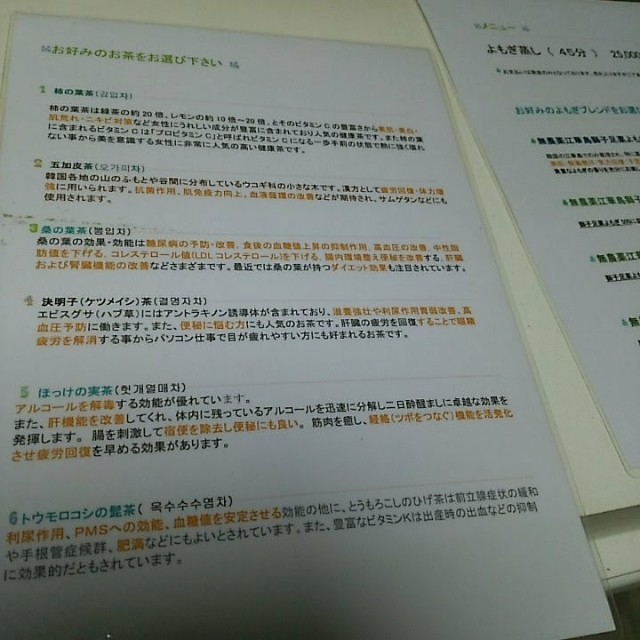 お好みのお茶をお選び下さい
1 柿の葉茶(감잎차)
柿の葉茶は緑茶の約20倍、レモンの約10倍～20倍、とそのビタミンCの豊富さから美肌・美白・
肌荒れ・ニキビ対策など女性にうれしい成分が豊富に含まれており人気の健康茶です。また柿の葉
に含まれるビタミンCは「プロビタミンC」と呼ばれビタミンCになる一歩手前の状態で熱に強く壊れ
ない事から美を意識する女性に非常に人気の高い健康茶です。
2 五加皮茶(오가피차)
韓国各地の山のふもとや谷間に分布しているウコギ科の小さな木です。漢方として疲労回復・体力増
強に用いられます。抗菌作用、肌免疫力向上、血液循環の改善などが期待され、サムゲタンなどにも
使用されます。
3 桑の葉茶(뽕잎차)
桑の葉の効果・効能は糖尿病の予防・改善、食後の血糖値上昇の抑制作用、高血圧の改善、中性脂
肪値を下げる、コレステロール値(LDLコレステロール)を下げる、腸内環境整え便秘を改善する、肝臓
および腎臓機能の改善などさまざまです。最近では桑の葉が持つダイエット効果も注目されています。
4 決明子(ケツメイシ)茶(결명자차)
エビスグサ(ハブ草)にはアントラキノン誘導体が含まれており、滋養強壮や利尿作用胃弱改善、高
血圧予防に働きます。また、便秘に悩む方にも人気のお茶です。肝臓の疲労を回復することで眼精
疲労を解消する事からパソコン仕事で目が疲れやすい方にも好まれるお茶です。
5 ほっけの実茶(헛개열매차)
アルコールを解毒する効能が優れています。
また、肝機能を改善してくれ、体内に残っているアルコールを迅速に分解し二日酔醒ましに卓越な効果を
発揮します。 腸を刺激して宿便を除去し便秘にも良い。 筋肉を癒し、経絡(ツボをつなぐ)機能を活発化
させ疲労回復を早める効果があります。
6 トウモロコシの髭茶( 옥수수수염차)
利尿作用、PMSへの効能、血糖値を安定させる効能の他に、とうもろこしのひげ茶は前立腺症状の緩和
や手根管症候群、肥満などにもよいとされています。また、豊富なビタミンKは出産時の出血などの抑制
に効果的だともされています。
メニュー
よもぎ蒸し ( 45分 ) 25,000
お好みのよもぎブレンドをお選
無農薬江華島獅子足黒よも